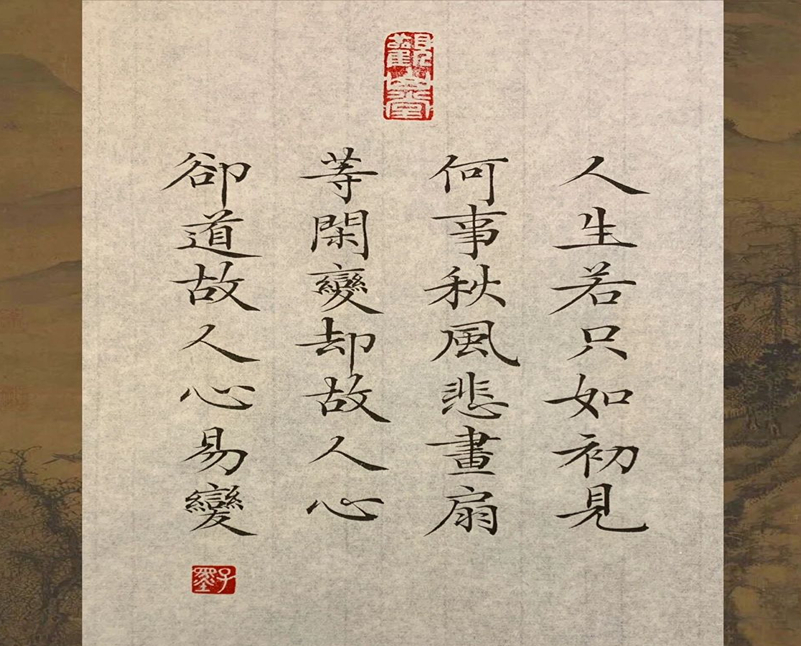 人生若只如初見
何事秋風悲畫扇
等閑變却故人心
卻道故人心易變
子墨